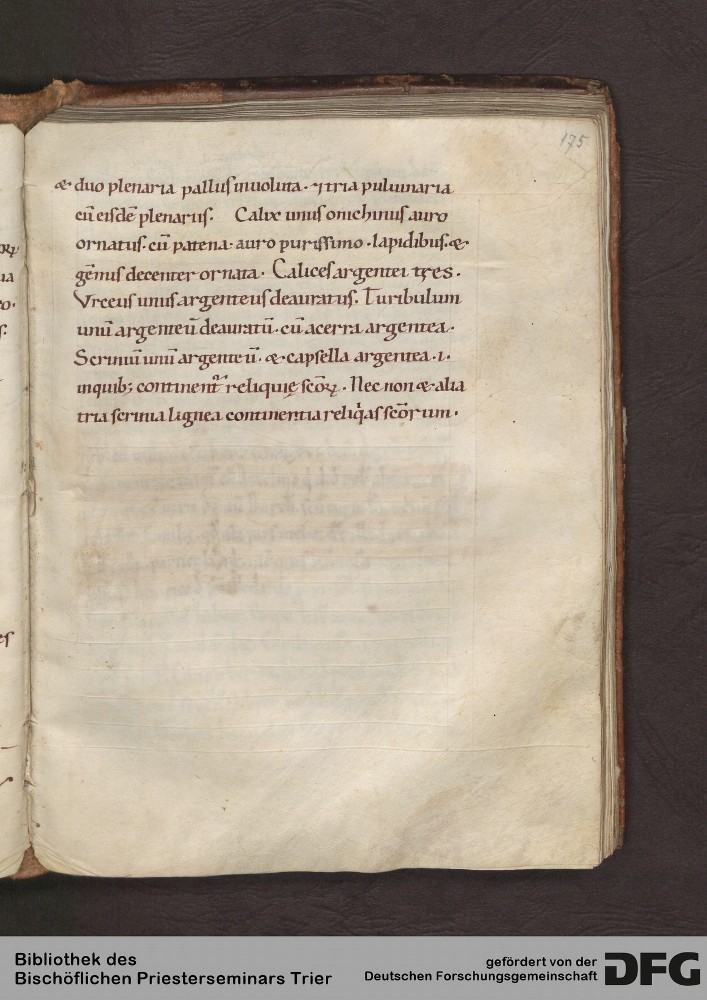 175
& duo plenaria pallus inuoluta · ⁊ tria puluinaria
cū eisdē plenariis. Calix unus onichinus auro
ornatus · cū patena · auro purissimo · lapidibus · &
gēmis decenter ornata · Calices argentei tres ·
Vrceus unus argenteus deauratus. Turibulum
unū argenteū deauratū · cū acerra argentea ·
Scriniū unū argenteū · & capsella argentea · i ·
inquib; continent̄ reliquię scōꝝ · Nec non & alia
tria scrinia lignea continentia reliq̄as scōrum ·
Bibliothek des
Bischöflichen Priesterseminars Trier
gefördert von der
Deutschen Forschungsgemeinschaft
DFG